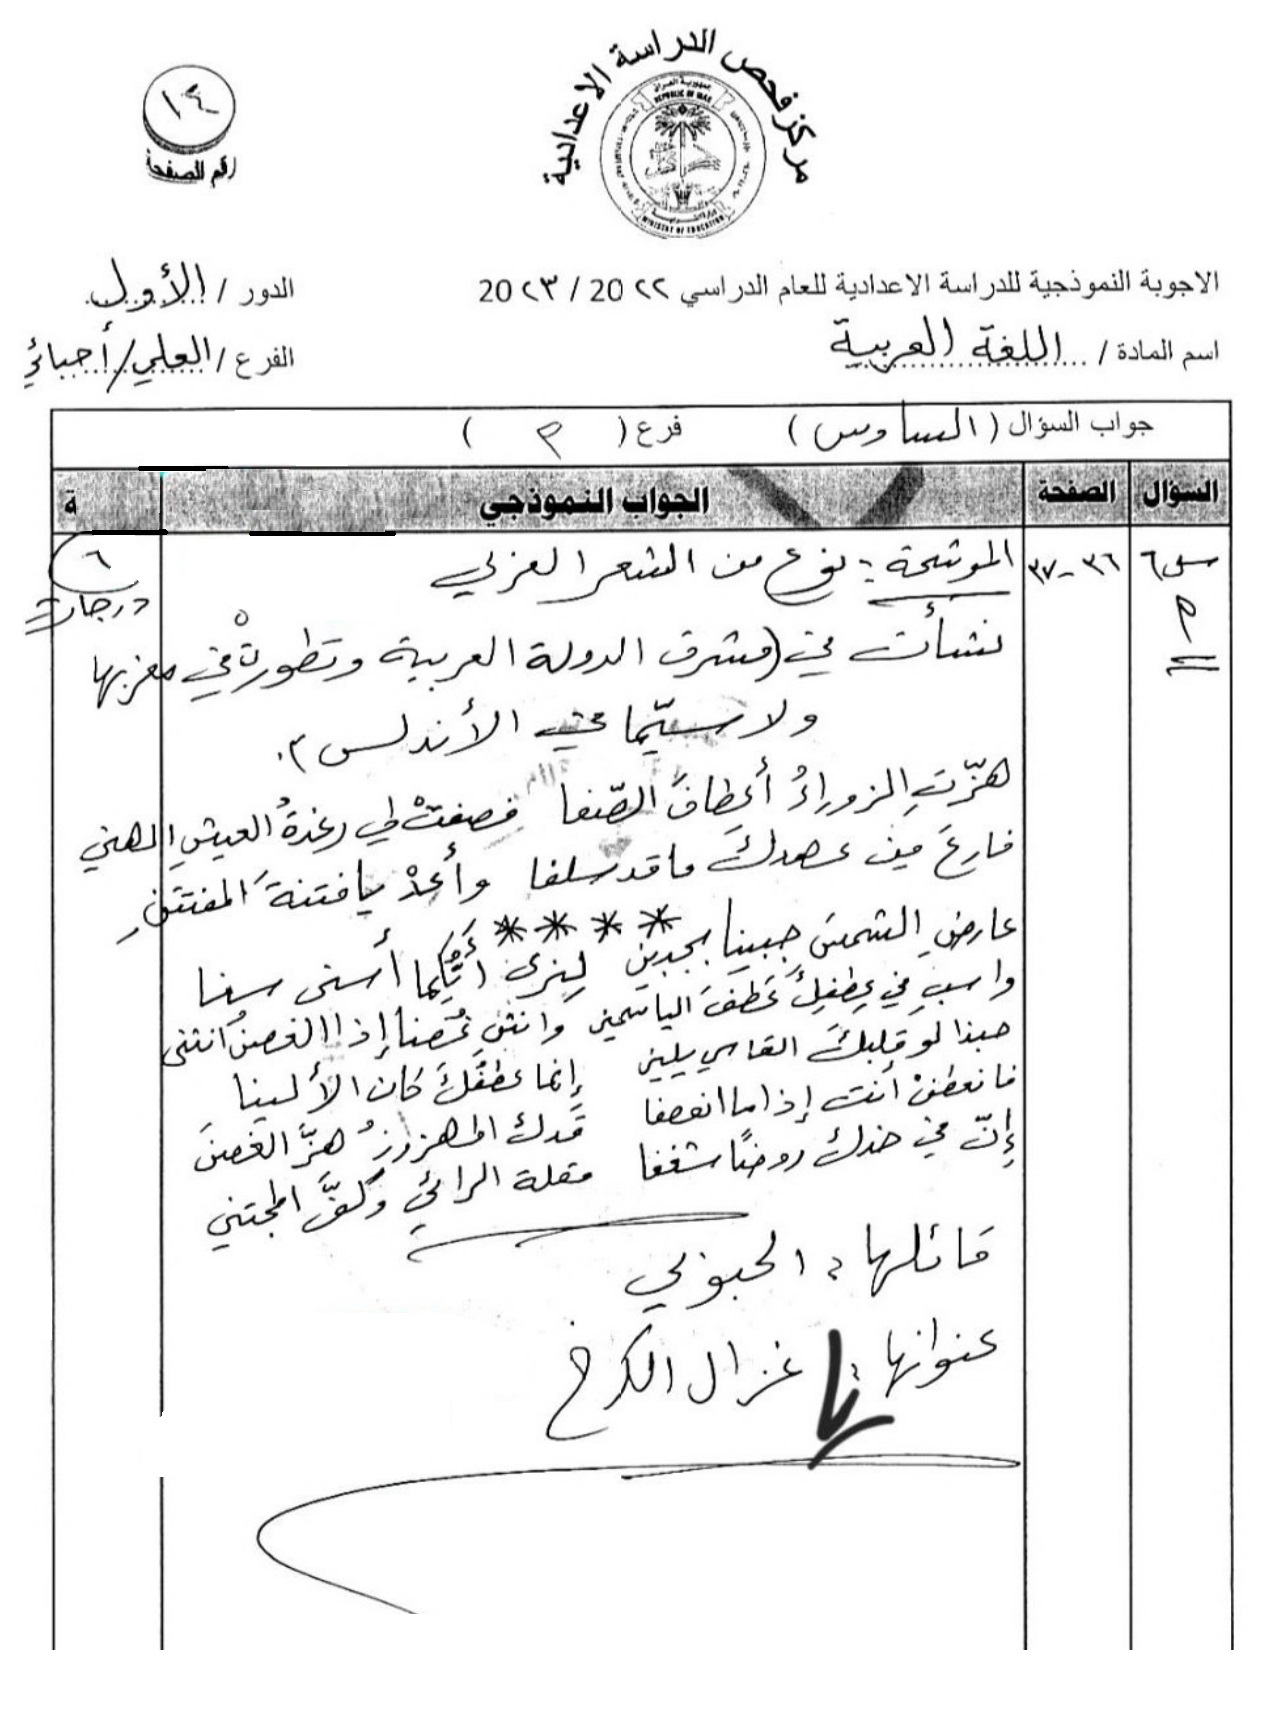 مركز فحص الدراسة الاعدادية
جمهورية العراق
REPUBLIC OF IRAQ
وزارة التربية
MINISTRY OF EDUCATION
١٤
رقم الصفحة
الاجوبة النموذجية للدراسة الاعدادية للعام الدراسي ٢٢ 20 / ٢٣ 20
الدور / الأول
اسم المادة / اللغة العربية
الفرع / العلمي/أحيائي
جواب السؤال ( السادس ) فرع ( م )
السؤال الصفحة الجواب النموذجي ة
س٦ ٣٦-٣٧ الموشحة : نوع من الشعر العربي ٦
م درجات
نشأت في (مشرق الدولة العربية وتطورتْ في مغربها
ولاسيّما في الأندلس).
هزّتِ الزوراءُ أعطافَ الصّفا فصفتْ لي رغدةُ العيشِ الهني
فارعَ من عهدكَ ما قد سلفا وأعدْ يا فتنةَ المفتتنِ
****
عارضِ الشمسَ جبيناً بجبين لِنرى أيُّكما أسنى سنا
واسبِ في عِطفِكَ عَطفَ الياسمين وانثنِ غُصناً إذا الغصنُ انثنى
حبذا لو قلبكَ القاسي يلين إنما عطفُكَ كان الألينا
فانعطفْ أنت إذا ما انعطفا قدك المهزوزُ هزَّ الغصنَ
إنّ في خدك روضًا شغفا مقلة الرائي وكفَّ المجتني
قائلها : الحبوبي
عنوانها : غزال الكرخ